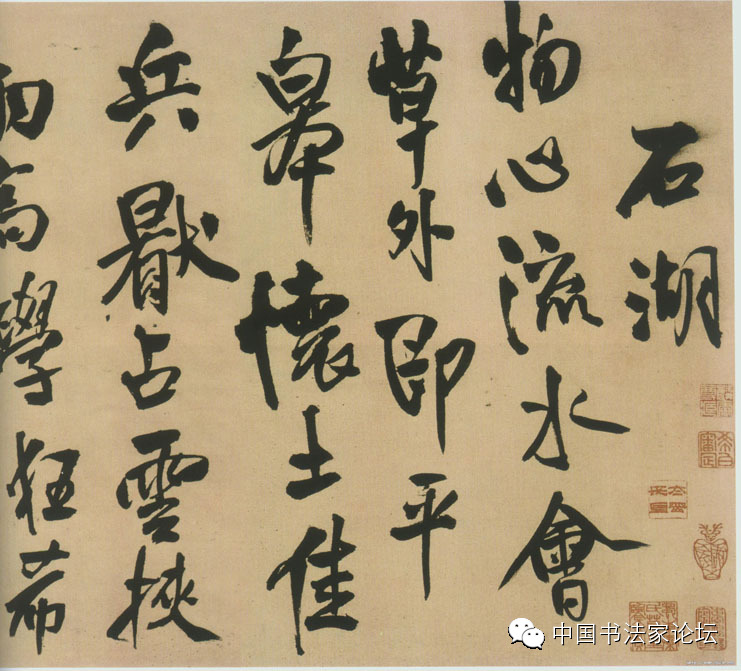 石湖
物心流水會
草外即平
皋懷土佳
兵猒占雲挾
高學狂希
中国书法家论坛